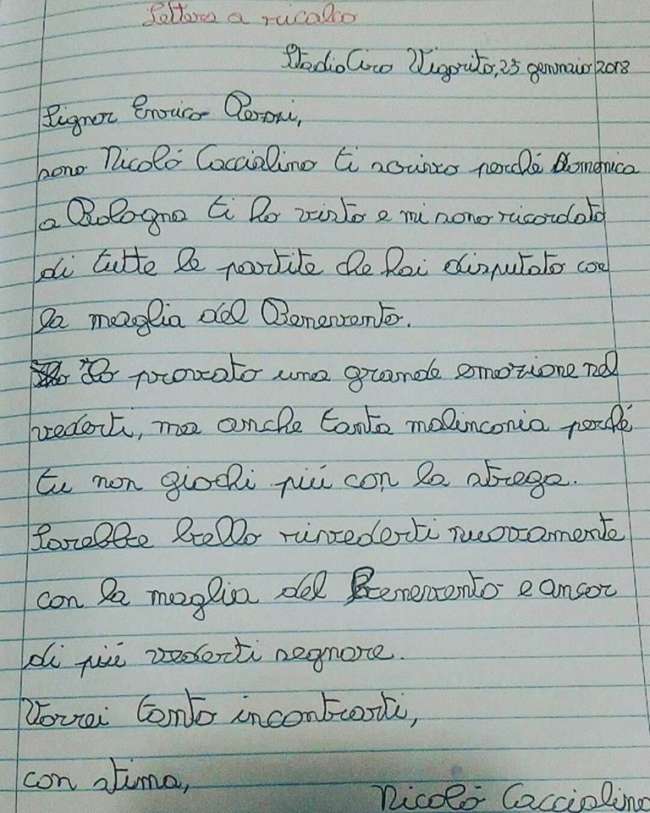 Lettera a ricalco
Stadio Ciro Vigorito, 25 gennaio 2018
Signor Enrico Pezzi,
sono Nicoló Cacciolino ti scrivo perché Domenica
a Bologna ti ho visto e mi sono ricordato
di tutte le partite che hai disputato con
la maglia del Benevento.
Ho provato una grande emozione nel
vederti, ma anche tanta malinconia perché
tu non giochi piú con la strega.
Sarebbe bello rivederti nuovamente
con la maglia del Benevento e ancor
di piú vederti segnare.
Vorrei tanto incontrarti,
con stima,
Nicoló Cacciolino